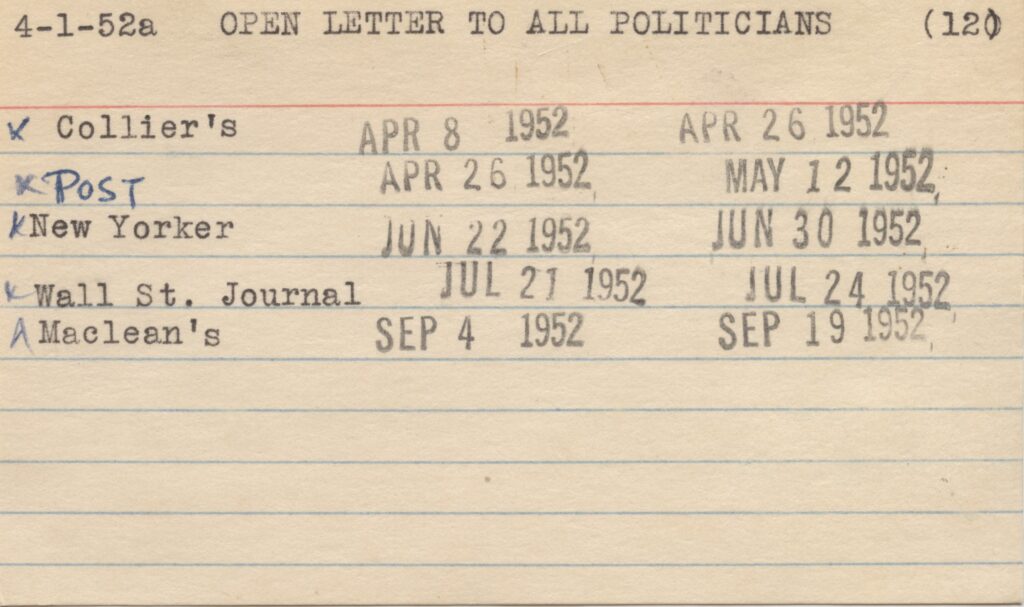 4-1-52a OPEN LETTER TO ALL POLITICIANS (120)
x Collier's APR 8 1952 APR 26 1952
x POST APR 26 1952 MAY 12 1952
x New Yorker JUN 22 1952 JUN 30 1952
x Wall St. Journal JUL 21 1952 JUL 24 1952
A Maclean's SEP 4 1952 SEP 19 1952